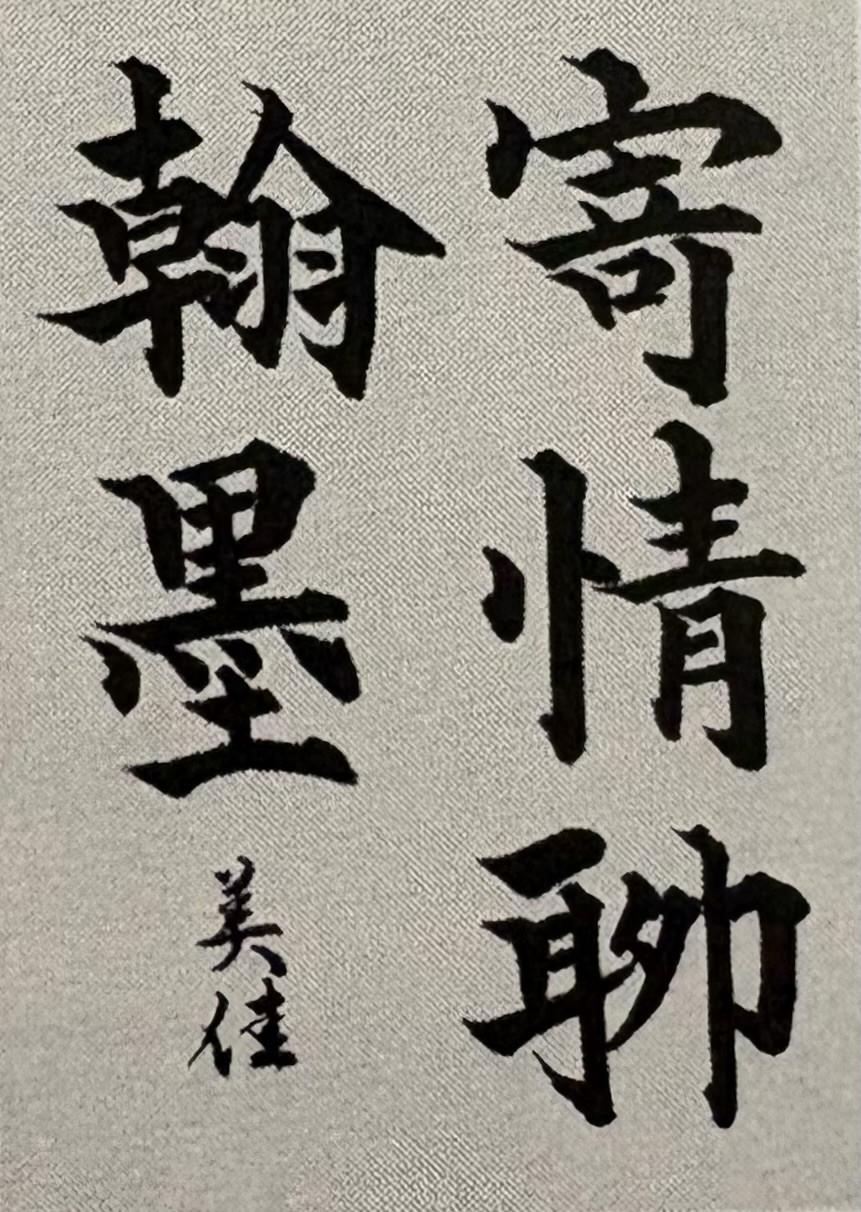 寄情聊
翰墨
美佳